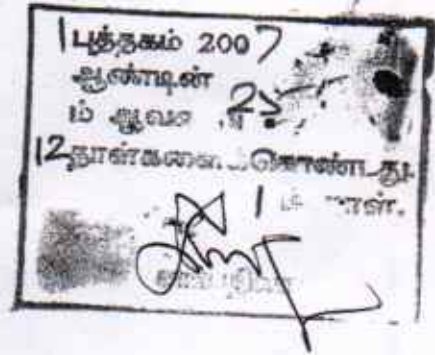 1 புத்தகம் 2007
ஆண்டின்
ம் ஆவண
12 தாள்களைக் கொண்டது.
1 ம் தாள்.